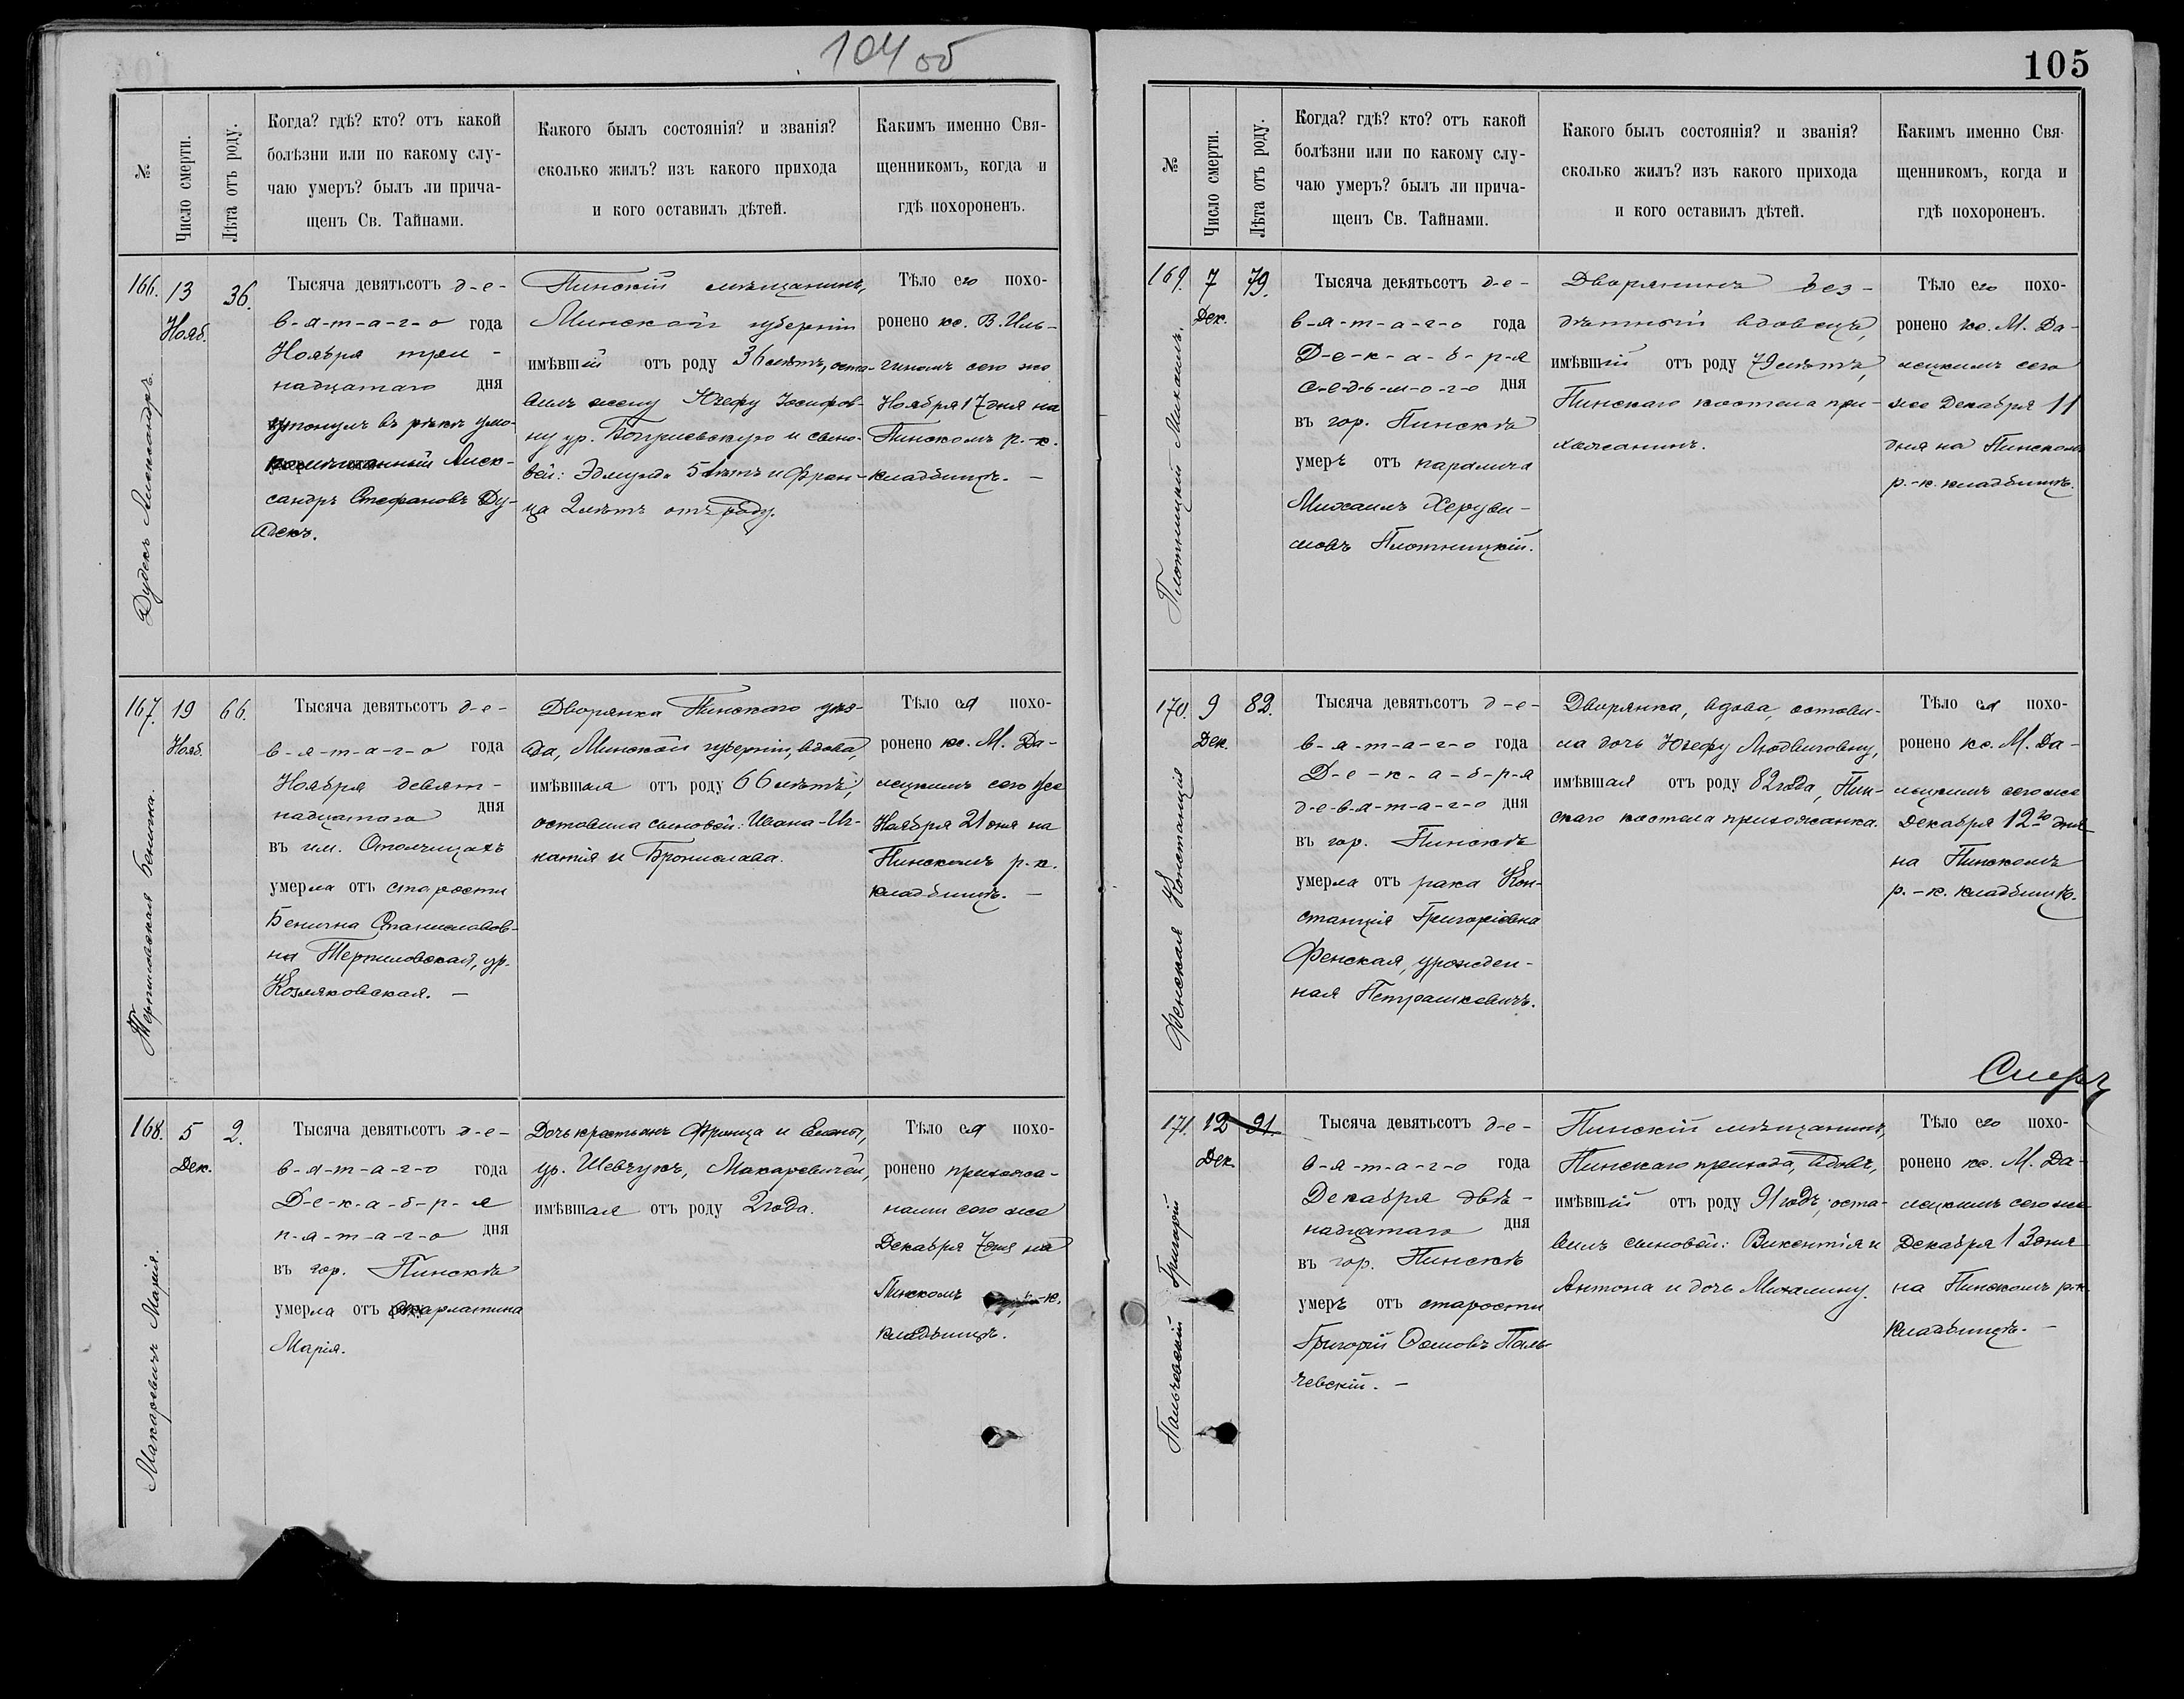 104 об
№
Число смерти.
Лѣта отъ роду.
Когда? гдѣ? кто? отъ какой
болѣзни или по какому слу-
чаю умеръ? былъ ли прича-
щенъ Св. Тайнами.
Какого былъ состоянія? и званія?
сколько жилъ? изъ какого прихода
и кого оставилъ дѣтей.
Какимъ именно Свя-
щенникомъ, когда и
гдѣ похороненъ.
166.
Дудекъ Александръ.
13
Нояб.
36.
Тысяча девятьсотъ д-е-
в-я-т-а-г-о года
Ноября три-
надцатаго дня
утонулъ въ рѣкѣ умо-
Алек-
сандръ Стефановъ Ду-
декъ.
Пинскій мѣщанинъ,
Минской губерніи
имѣвшій отъ роду 36 лѣтъ, оста-
вилъ жену Юзефу Іосифов-
ну ур. и сыно-
вей: Эдмунда 5 лѣтъ и Фран-
ца 2 лѣтъ отъ роду.
Тѣло его похо-
ронено кс. В. Иль-
гиномъ сего же
Ноября 17 дня на
Пинскомъ р.-к.
кладбищѣ. —
167.
Терпиловская Бенигна.
19
Нояб.
66.
Тысяча девятьсотъ д-е-
в-я-т-а-г-о года
Ноября девят-
надцатаго дня
въ им. Отолчицахъ
умерла отъ старости
Бенигна Станиславов-
на Терпиловская, ур.
Козляковская. —
Дворянка Пинскаго уѣз-
да, Минской губерніи, вдова,
имѣвшая отъ роду 66 лѣтъ,
оставила сыновей: Ивана-Иг-
натія и Бронислава.
Тѣло ея похо-
ронено кс. М. Да-
лецкимъ сего же
Ноября 21 дня на
Пинскомъ р.-к.
кладбищѣ. —
168.
Макаревичъ Марія.
5
Дек.
2.
Тысяча девятьсотъ д-е-
в-я-т-а-г-о года
Д-е-к-а-б-р-я
п-я-т-а-г-о дня
въ гор. Пинскѣ
умерла отъ скарлатина
Марія.
Дочь крестьянъ Франца и Елены,
ур. Шевчукъ, Макаревичей,
имѣвшая отъ роду 2 года.
Тѣло ея похо-
ронено прихожа-
нами сего же
Декабря 7 дня на
Пинскомъ р.-к.
кладбищѣ.
105
№
Число смерти.
Лѣта отъ роду.
Когда? гдѣ? кто? отъ какой
болѣзни или по какому слу-
чаю умеръ? былъ ли прича-
щенъ Св. Тайнами.
Какого былъ состоянія? и званія?
сколько жилъ? изъ какого прихода
и кого оставилъ дѣтей.
Какимъ именно Свя-
щенникомъ, когда и
гдѣ похороненъ.
169.
Плотницкій Михаилъ.
7
Дек.
79.
Тысяча девятьсотъ д-е-
в-я-т-а-г-о года
Д-е-к-а-б-р-я
с-е-д-ь-м-о-г-о дня
въ гор. Пинскѣ
умеръ отъ паралича
Михаилъ Херуви-
мовъ Плотницкій.
Дворянинъ без-
дѣтный вдовецъ,
имѣвшій отъ роду 79 лѣтъ,
Пинскаго костела при-
хожанинъ.
Тѣло его похо-
ронено кс. М. Да-
лецкимъ сего
же Декабря 11
дня на Пинскомъ
р.-к. кладбищѣ.
170.
Фенская Констанція
9
Дек.
82.
Тысяча девятьсотъ д-е-
в-я-т-а-г-о года
Д-е-к-а-б-р-я
д-е-в-я-т-а-г-о дня
въ гор. Пинскѣ
умерла отъ рака Кон-
станція Григоріевна
Фенская, урожден-
ная Петрашкевичъ.
Дворянка, вдова, остави-
ла дочь Юзефу Людвиговну,
имѣвшая отъ роду 82 года, Пин-
скаго костела прихожанка.
Тѣло ея похо-
ронено кс. М. Да-
лецкимъ сего же
Декабря 12го дня
на Пинскомъ
р.-к. кладбищѣ.
171.
Пальчевскій Григорій
12
Дек.
91.
Тысяча девятьсотъ д-е-
в-я-т-а-г-о года
Декабря двѣ-
надцатаго дня
въ гор. Пинскѣ
умеръ отъ старости
Григорій Ѳомовъ Паль-
чевскій. —
Пинскій мѣщанинъ,
Пинскаго прихода, вдовъ,
имѣвшій отъ роду 91 годъ, оста-
вилъ сыновей: Викентія и
Антона и дочь Михалину.
Тѣло его похо-
ронено кс. М. Да-
лецкимъ сего же
Декабря 13 дня
на Пинскомъ р.-к.
кладбищѣ. —